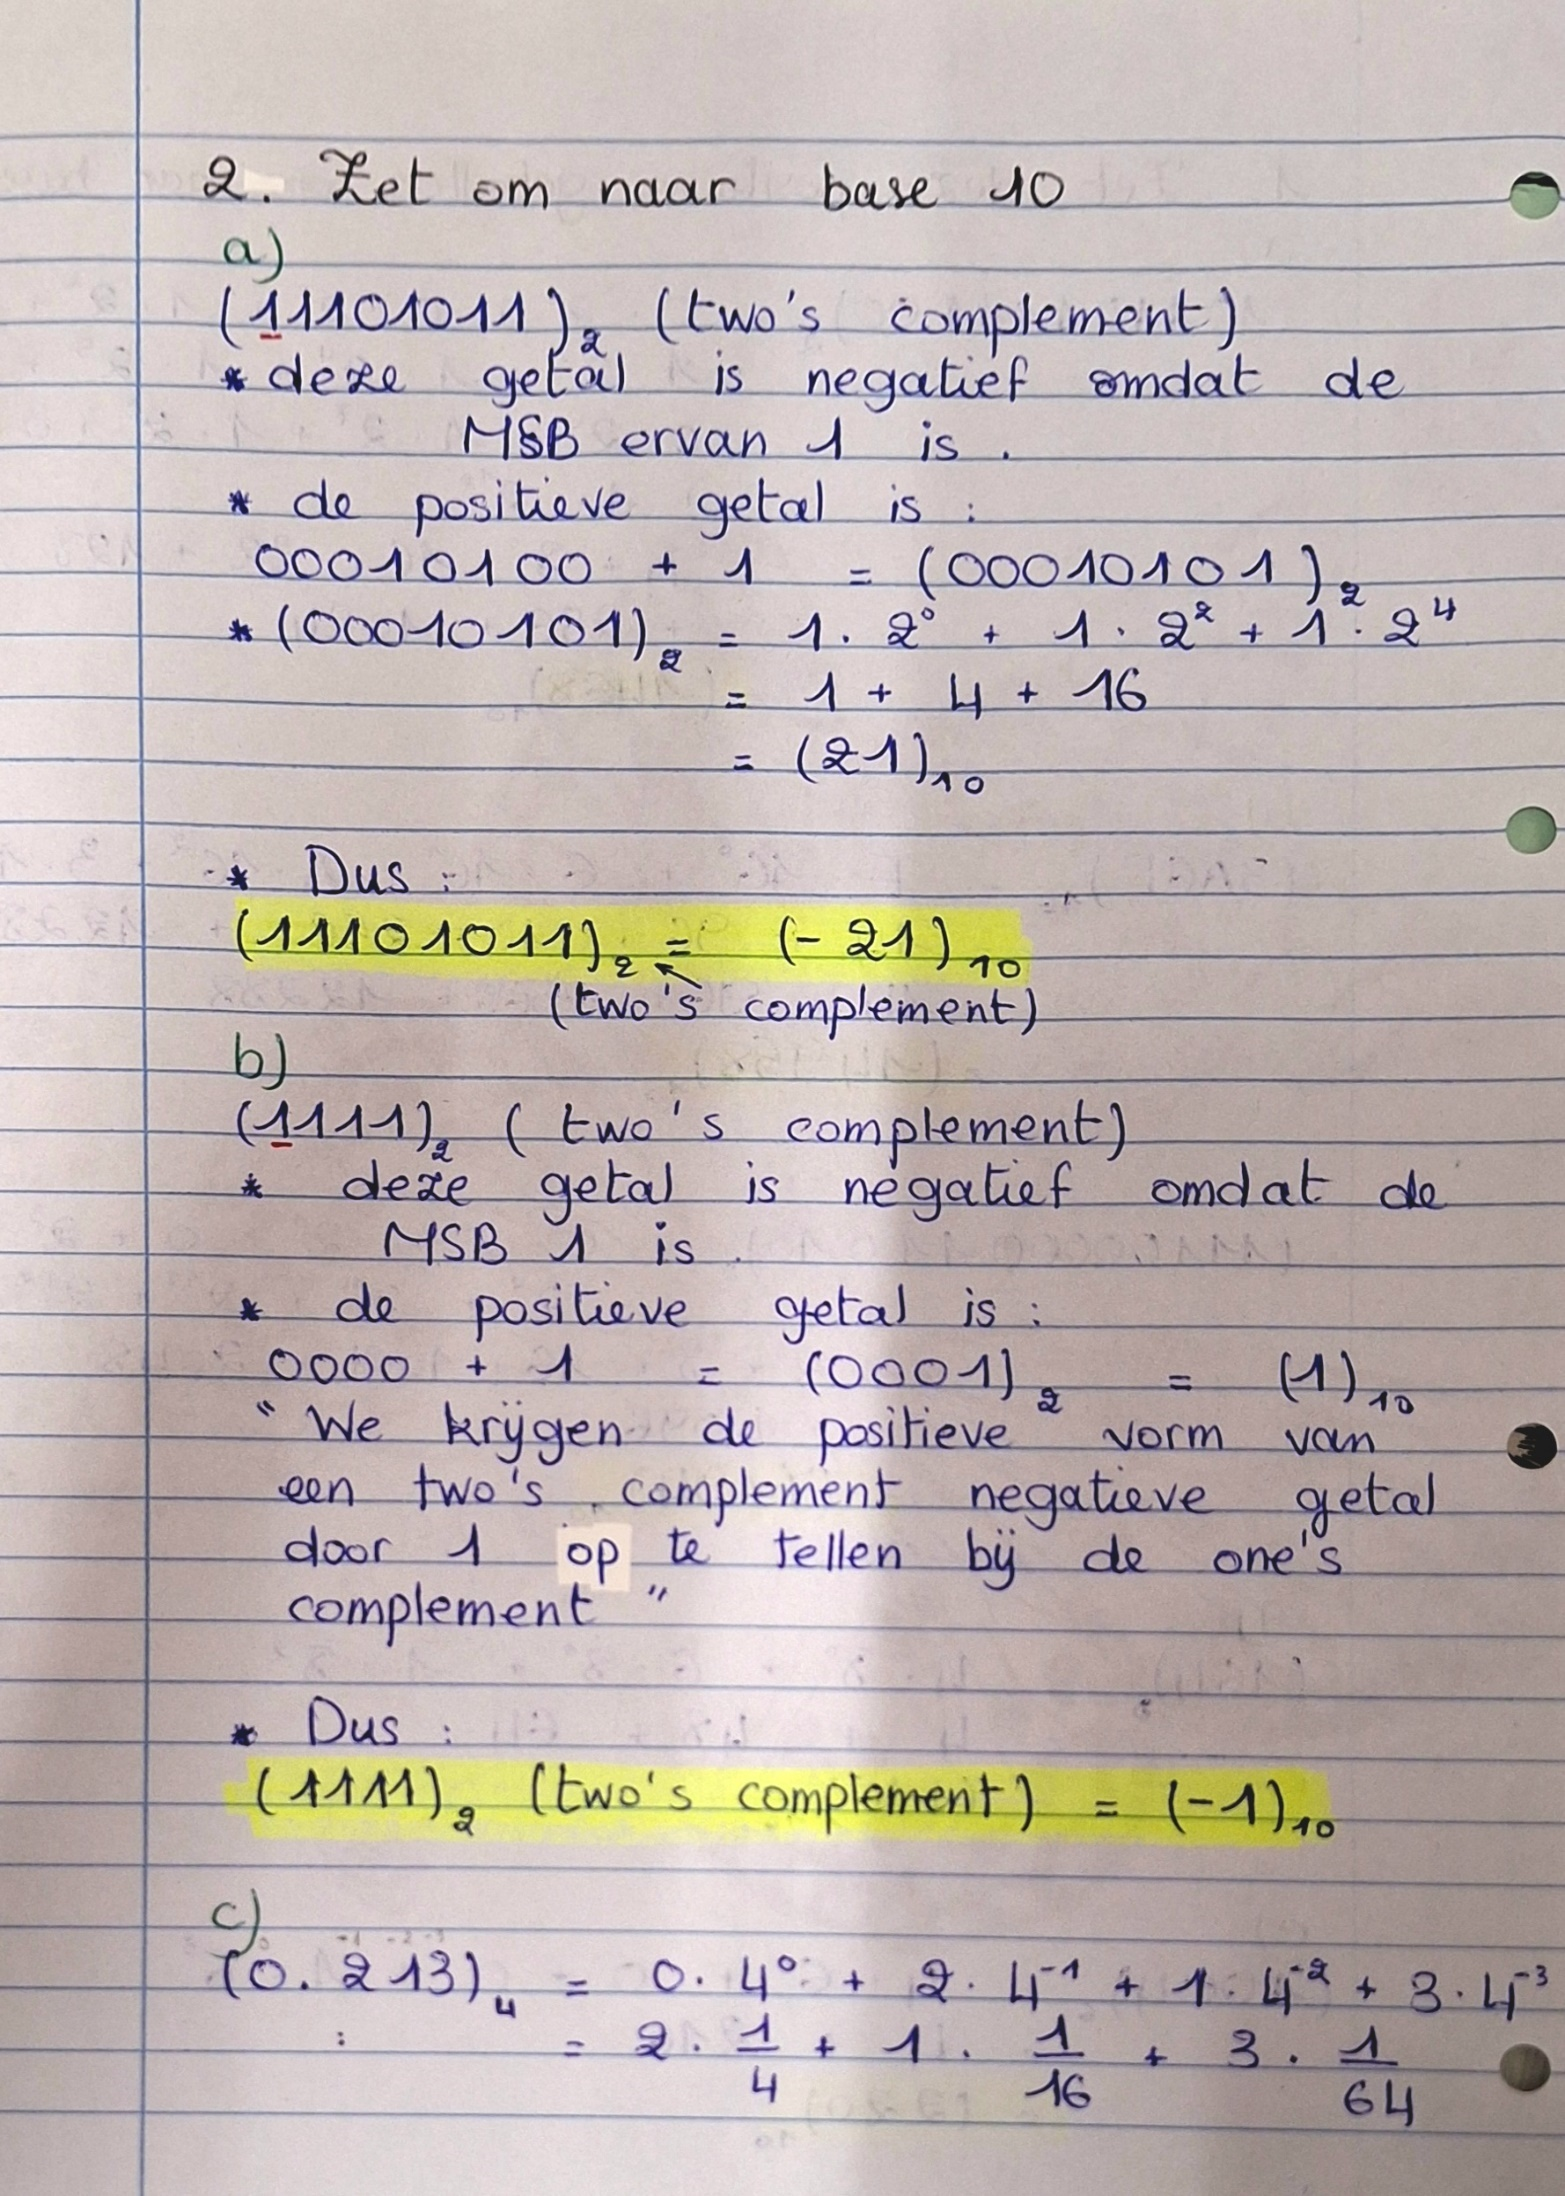 2. Zet om naar base 10
a)
(11101011)₂ (two's complement)
* deze getal is negatief omdat de
MSB ervan 1 is.
* de positieve getal is :
00010100 + 1 = (00010101)₂
* (00010101)₂ = 1 · 2⁰ + 1 · 2² + 1 · 2⁴
= 1 + 4 + 16
= (21)₁₀
* Dus :
(11101011)₂ = (- 21)₁₀
(two's complement)
b)
(1111)₂ ( two's complement)
* deze getal is negatief omdat de
MSB 1 is.
* de positieve getal is :
0000 + 1 = (0001)₂ = (1)₁₀
" We krijgen de positieve vorm van
een two's complement negatieve getal
door 1 op te tellen bij de one's
complement "
* Dus :
(1111)₂ (two's complement) = (-1)₁₀
c)
(0.213)₄ = 0 · 4⁰ + 2 · 4⁻¹ + 1 · 4⁻² + 3 · 4⁻³
: = 2 · 1/4 + 1 · 1/16 + 3 · 1/64